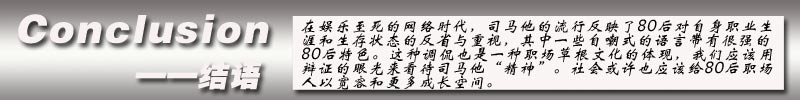 Conclusion
——结语
在娱乐至死的网络时代，司马他的流行反映了80后对自身职业生
涯和生存状态的反省与重视，其中一些自嘲式的语言带有很强的
80后特色。这种调侃也是一种职场草根文化的体现，我们应该用
辩证的眼光来看待司马他“精神”。社会或许也应该给80后职场
人以宽容和更多成长空间。